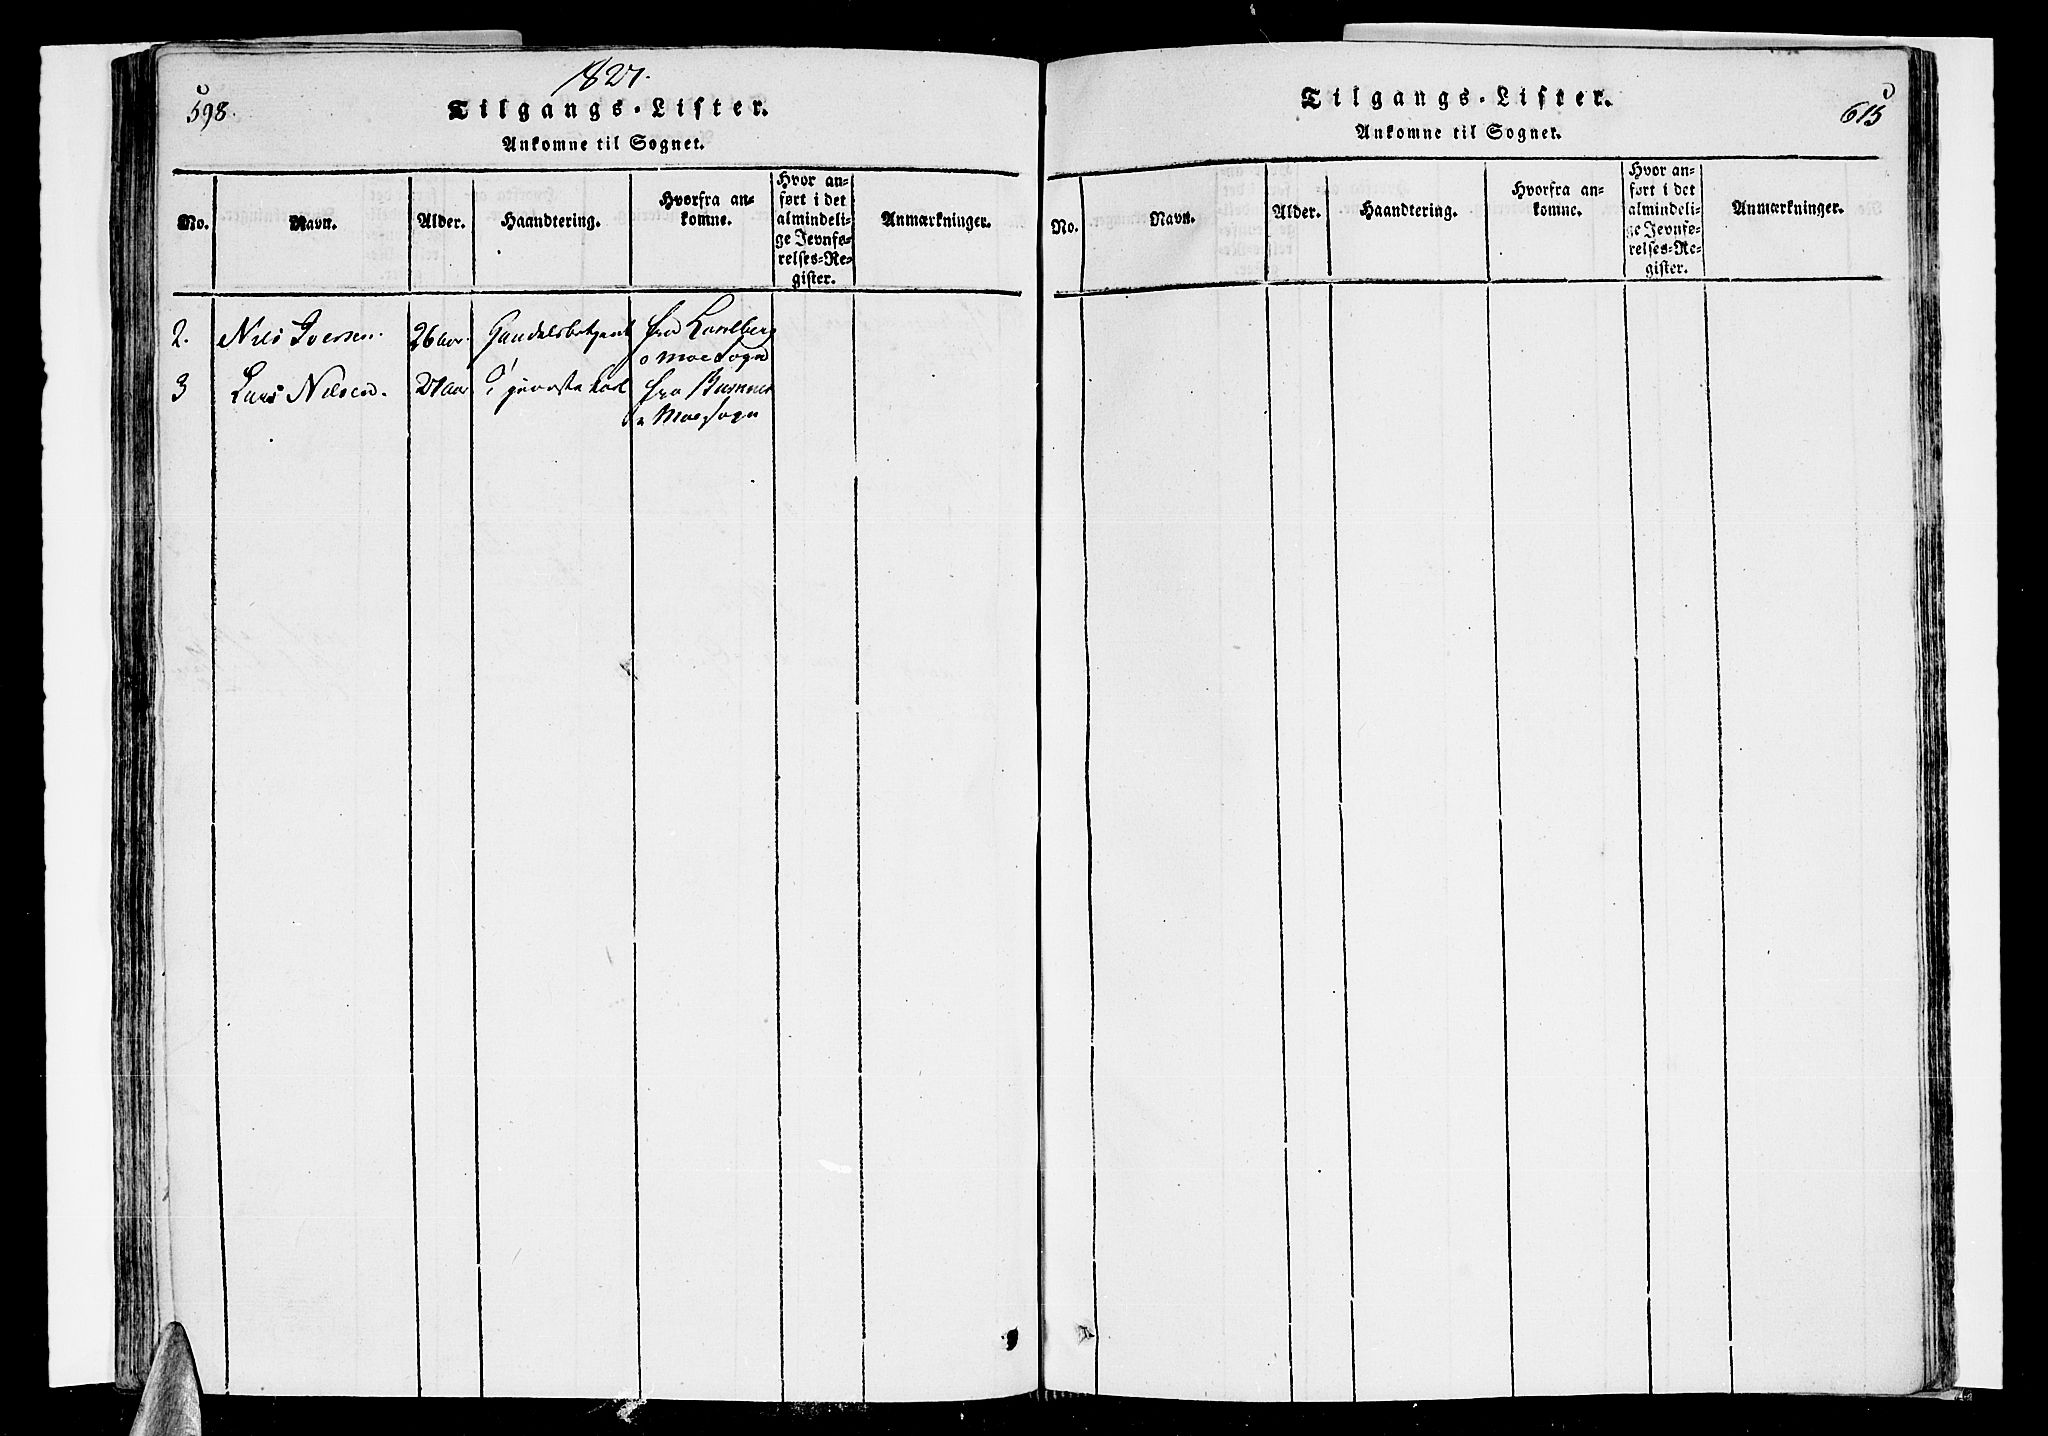 598.
1827.
Tilgangs-Lister.
Ankomne til Sognet.
No.
Navn.
Alder.
Haandtering.
Hvorfra an-
komne.
Hvor an-
ført i det
almindeli-
ge Jevnfø-
relses-Re-
gister.
Anmærkninger.
2. Nils Iversen. 26 aar. Handelsbetjent fra
Moe Sogn
3 Lars Nilsen. 27 aar fra
Moe Sogn
Tilgangs-Lister.
Ankomne til Sognet.
615
No.
Navn.
Alder.
Haandtering.
Hvorfra an-
komne.
Hvor an-
ført i det
almindeli-
ge Jevnfø-
relses-Re-
gister.
Anmærkninger.